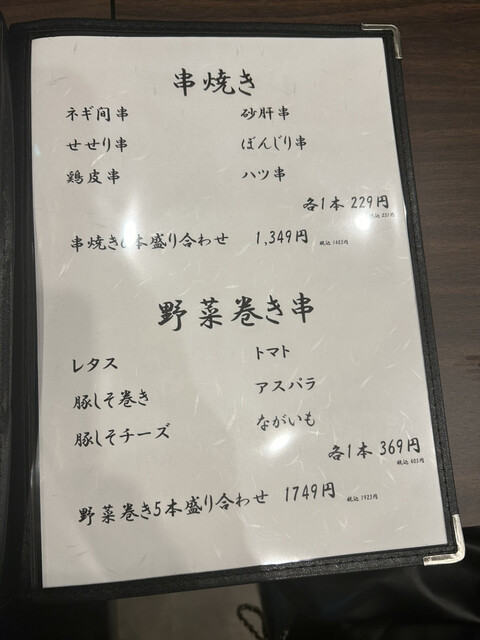 串焼き
ネギ間串
砂肝串
せせり串
ぼんじり串
鶏皮串
ハツ串
各1本 229円
税込 251円
串焼き6本盛り合わせ 1,349円 税込 1483円
野菜巻き串
レタス
トマト
豚しそ巻き
アスパラ
豚しそチーズ
ながいも
各1本 369円
税込 405円
野菜巻き5本盛り合わせ 1749円 税込 1923円